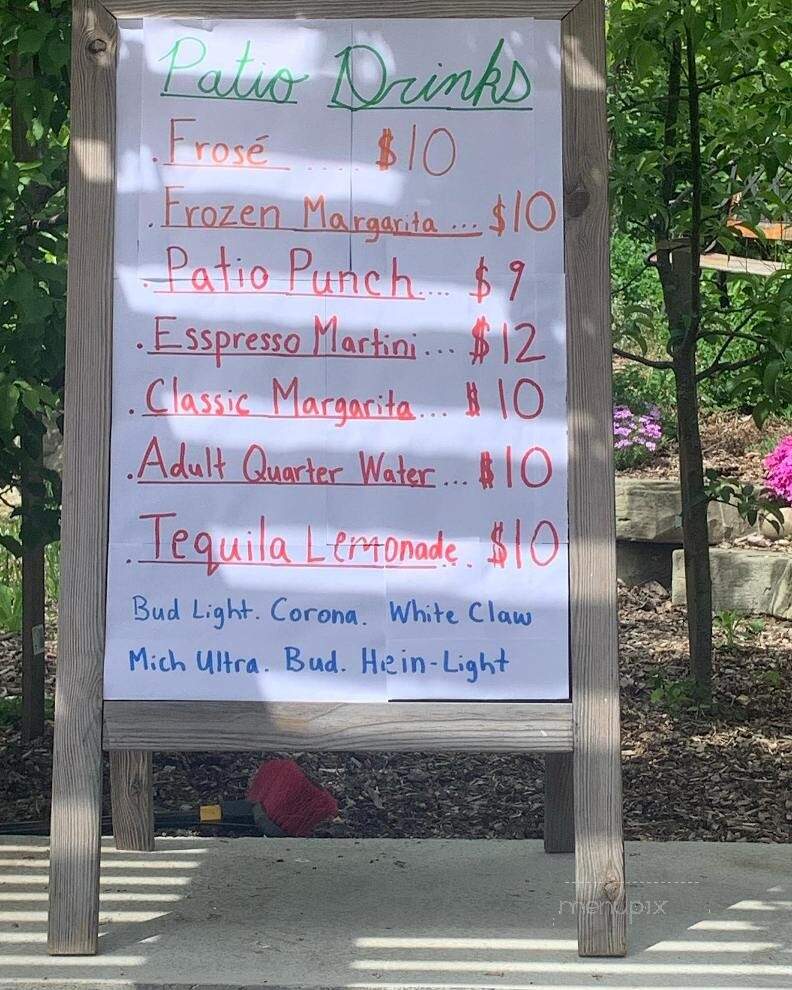 Patio Drinks
. Frosé .... $10
. Frozen Margarita ... $10
. Patio Punch ... $9
. Esspresso Martini ... $12
. Classic Margarita ... $10
. Adult Quarter Water ... $10
. Tequila Lemonade . $10
Bud Light. Corona. White Claw
Mich Ultra. Bud. Hein-Light
menupix